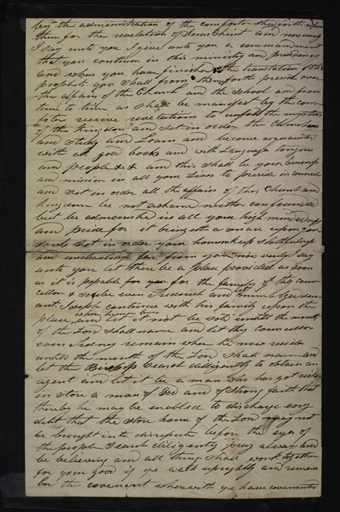 by the administration of the comforter shed forth upon
them for the revelation of Jesus Christ and now verily
I say unto you I give unto you a commandment
that you continue in this ministry and presidency
and when you have finished the translation of the
prophets you shall from thenceforth preside over
the affairs of the Church and the School and from
time to time as shall be manifest by the com
forter receive revelations to unfold the mysteries
of the kingdom and set in order the Churches
and study and Learn and become acquainted
with all good books and with Languages tongues
and people and this shall be your business
and mission in all your Lives to preside in council
and set in order all the affairs of this Church and
kingdom be not ashamed neither confounded
but be admonished in all your high mindedness
and pride for it bringeth a snare upon your
souls set in order your houses keep slothfulness
and uncleanness far from you now verily I say
unto you let there be a place provided as soon
as it is possable for you for the family of thy coun
cellor & scribe even Frederick and let mine aged serv
ant Joseph continue with his family upon the
place and let it not be sold untill the mouth
of the Lord shall name and let thy councellor
even Sidney remain where he now resides
untill the mouth of the Lord shall name and
let the Bishop search diligently to obtain an
agent and let it be a man who has got riches
in store a man of God and of strong faith that
thereby he may be enabled to discharge every
debt that the store house of the Lord may not
be brought into disrepute before the eyes of
the people search diligently pray always and
be believing and all things shall work together
for your good if ye walk uprightly and remem
ber the covenant wherewith ye have covenanted